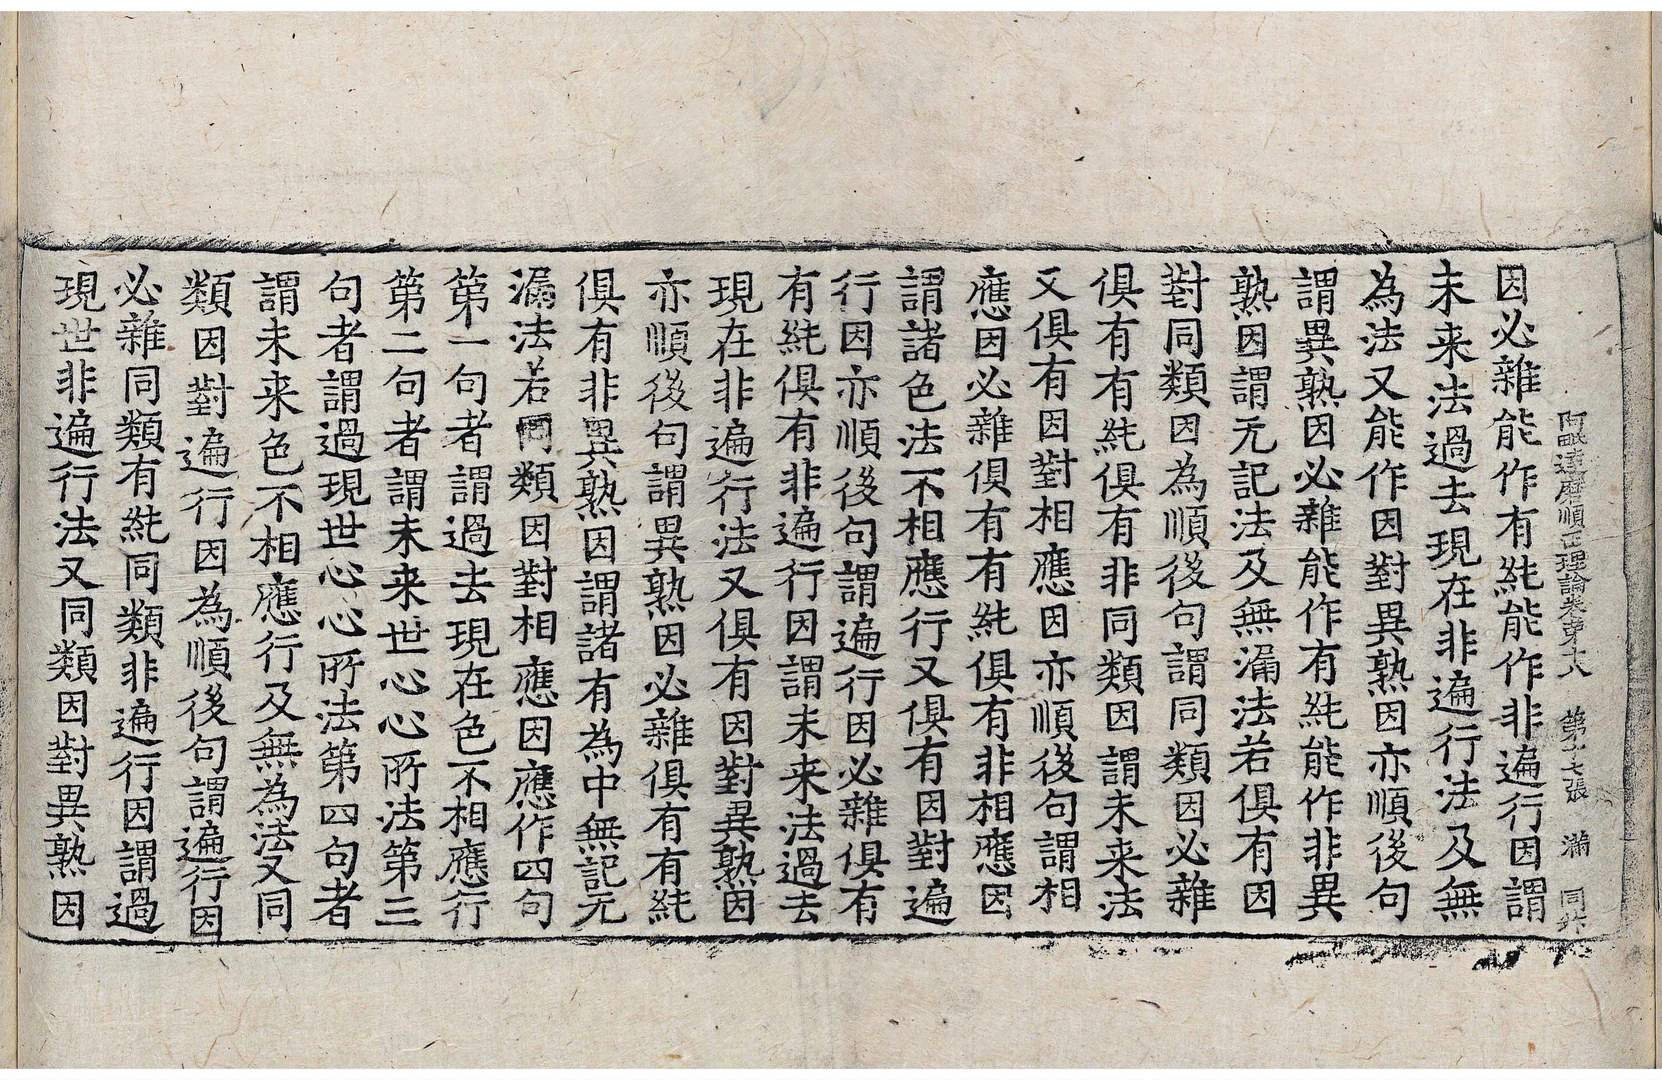 阿毗達磨順正理論卷第十八 第十七張 滿 同幷
因必雜能作有純能作非遍行因謂
未来法過去現在非遍行法及無
為法又能作因對異熟因亦順後句
謂異熟因必雜能作有純能作非異
熟因謂无記法及無漏法若俱有因
對同類因為順後句謂同類因必雜
俱有有純俱有非同類因謂未来法
又俱有因對相應因亦順後句謂相
應因必雜俱有有純俱有非相應因
謂諸色法不相應行又俱有因對遍
行因亦順後句謂遍行因必雜俱有
有純俱有非遍行因謂未来法過去
現在非遍行法又俱有因對異熟因
亦順後句謂異熟因必雜俱有有純
俱有非異熟因謂諸有為中無記无
漏法若同類因對相應因應作四句
第一句者謂過去現在色不相應行
第二句者謂未来世心心所法第三
句者謂過現世心心所法第四句者
謂未来色不相應行及無為法又同
類因對遍行因為順後句謂遍行因
必雜同類有純同類非遍行因謂過
現世非遍行法又同類因對異熟因